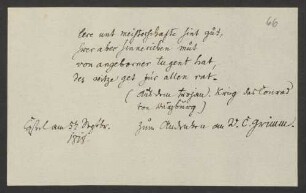 66
lere unt meisterschaft sint gůt,
swer aber sinnerichen můt
von angeborner tugent hat,
des witze get für allen rat.
(Aus dem trojan. Krieg des Conrad
von Würzburg)
Cassel am 5t
zum Andenken an W. C. Grimm.